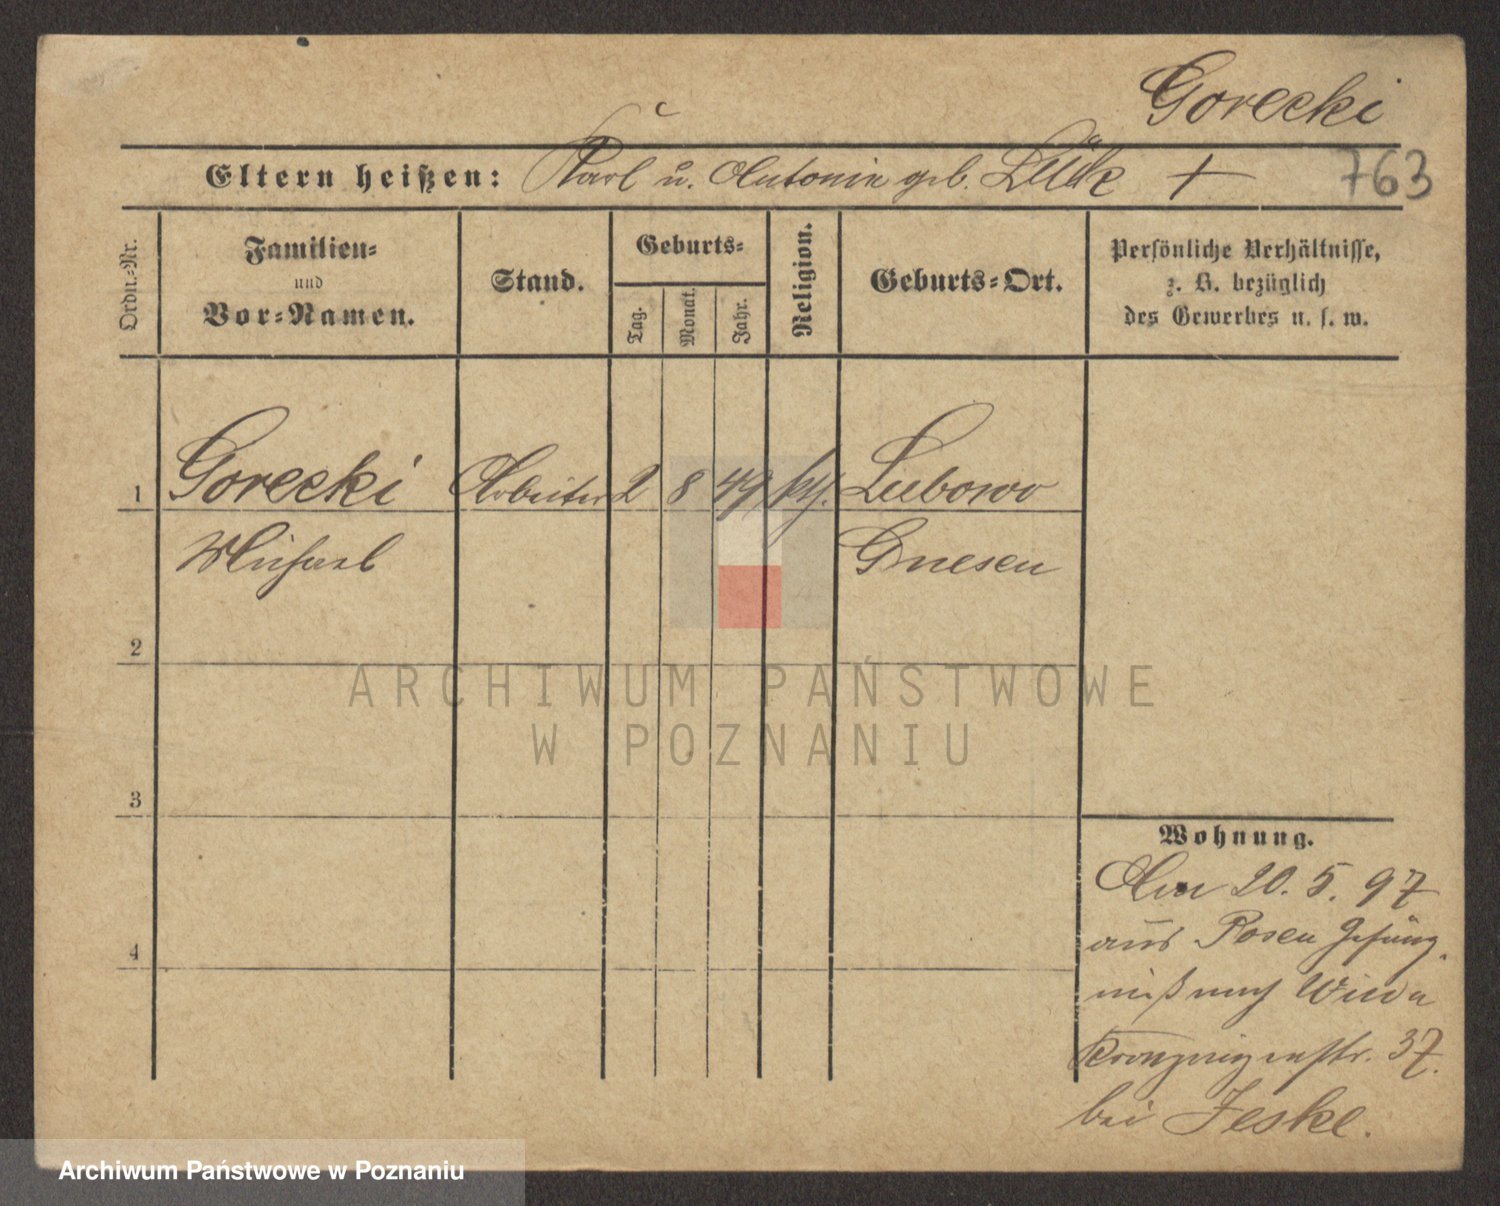 Gorecki
Eltern heißen: Karl u. Antonie geb. Lück +
763
Ordn.-Nr.
Familien-
und
Vor-Namen.
Stand.
Geburts-
Tag.
Monat.
Jahr.
Religion.
Geburts-Ort.
Persönliche Verhältnisse,
z. B. bezüglich
des Gewerbes u. s. w.
1 Gorecki Arbeiter 2 8 49 kth. Lubowo
Michael Gnesen
2
ARCHIWUM PAŃSTWOWE
W POZNANIU
3
Wohnung.
Am 20. 5. 97
aus Posen Gefäng-
niß nach Wilda
Kronprinzenstr. 37.
bei Jeske.
4
Archiwum Państwowe w Poznaniu